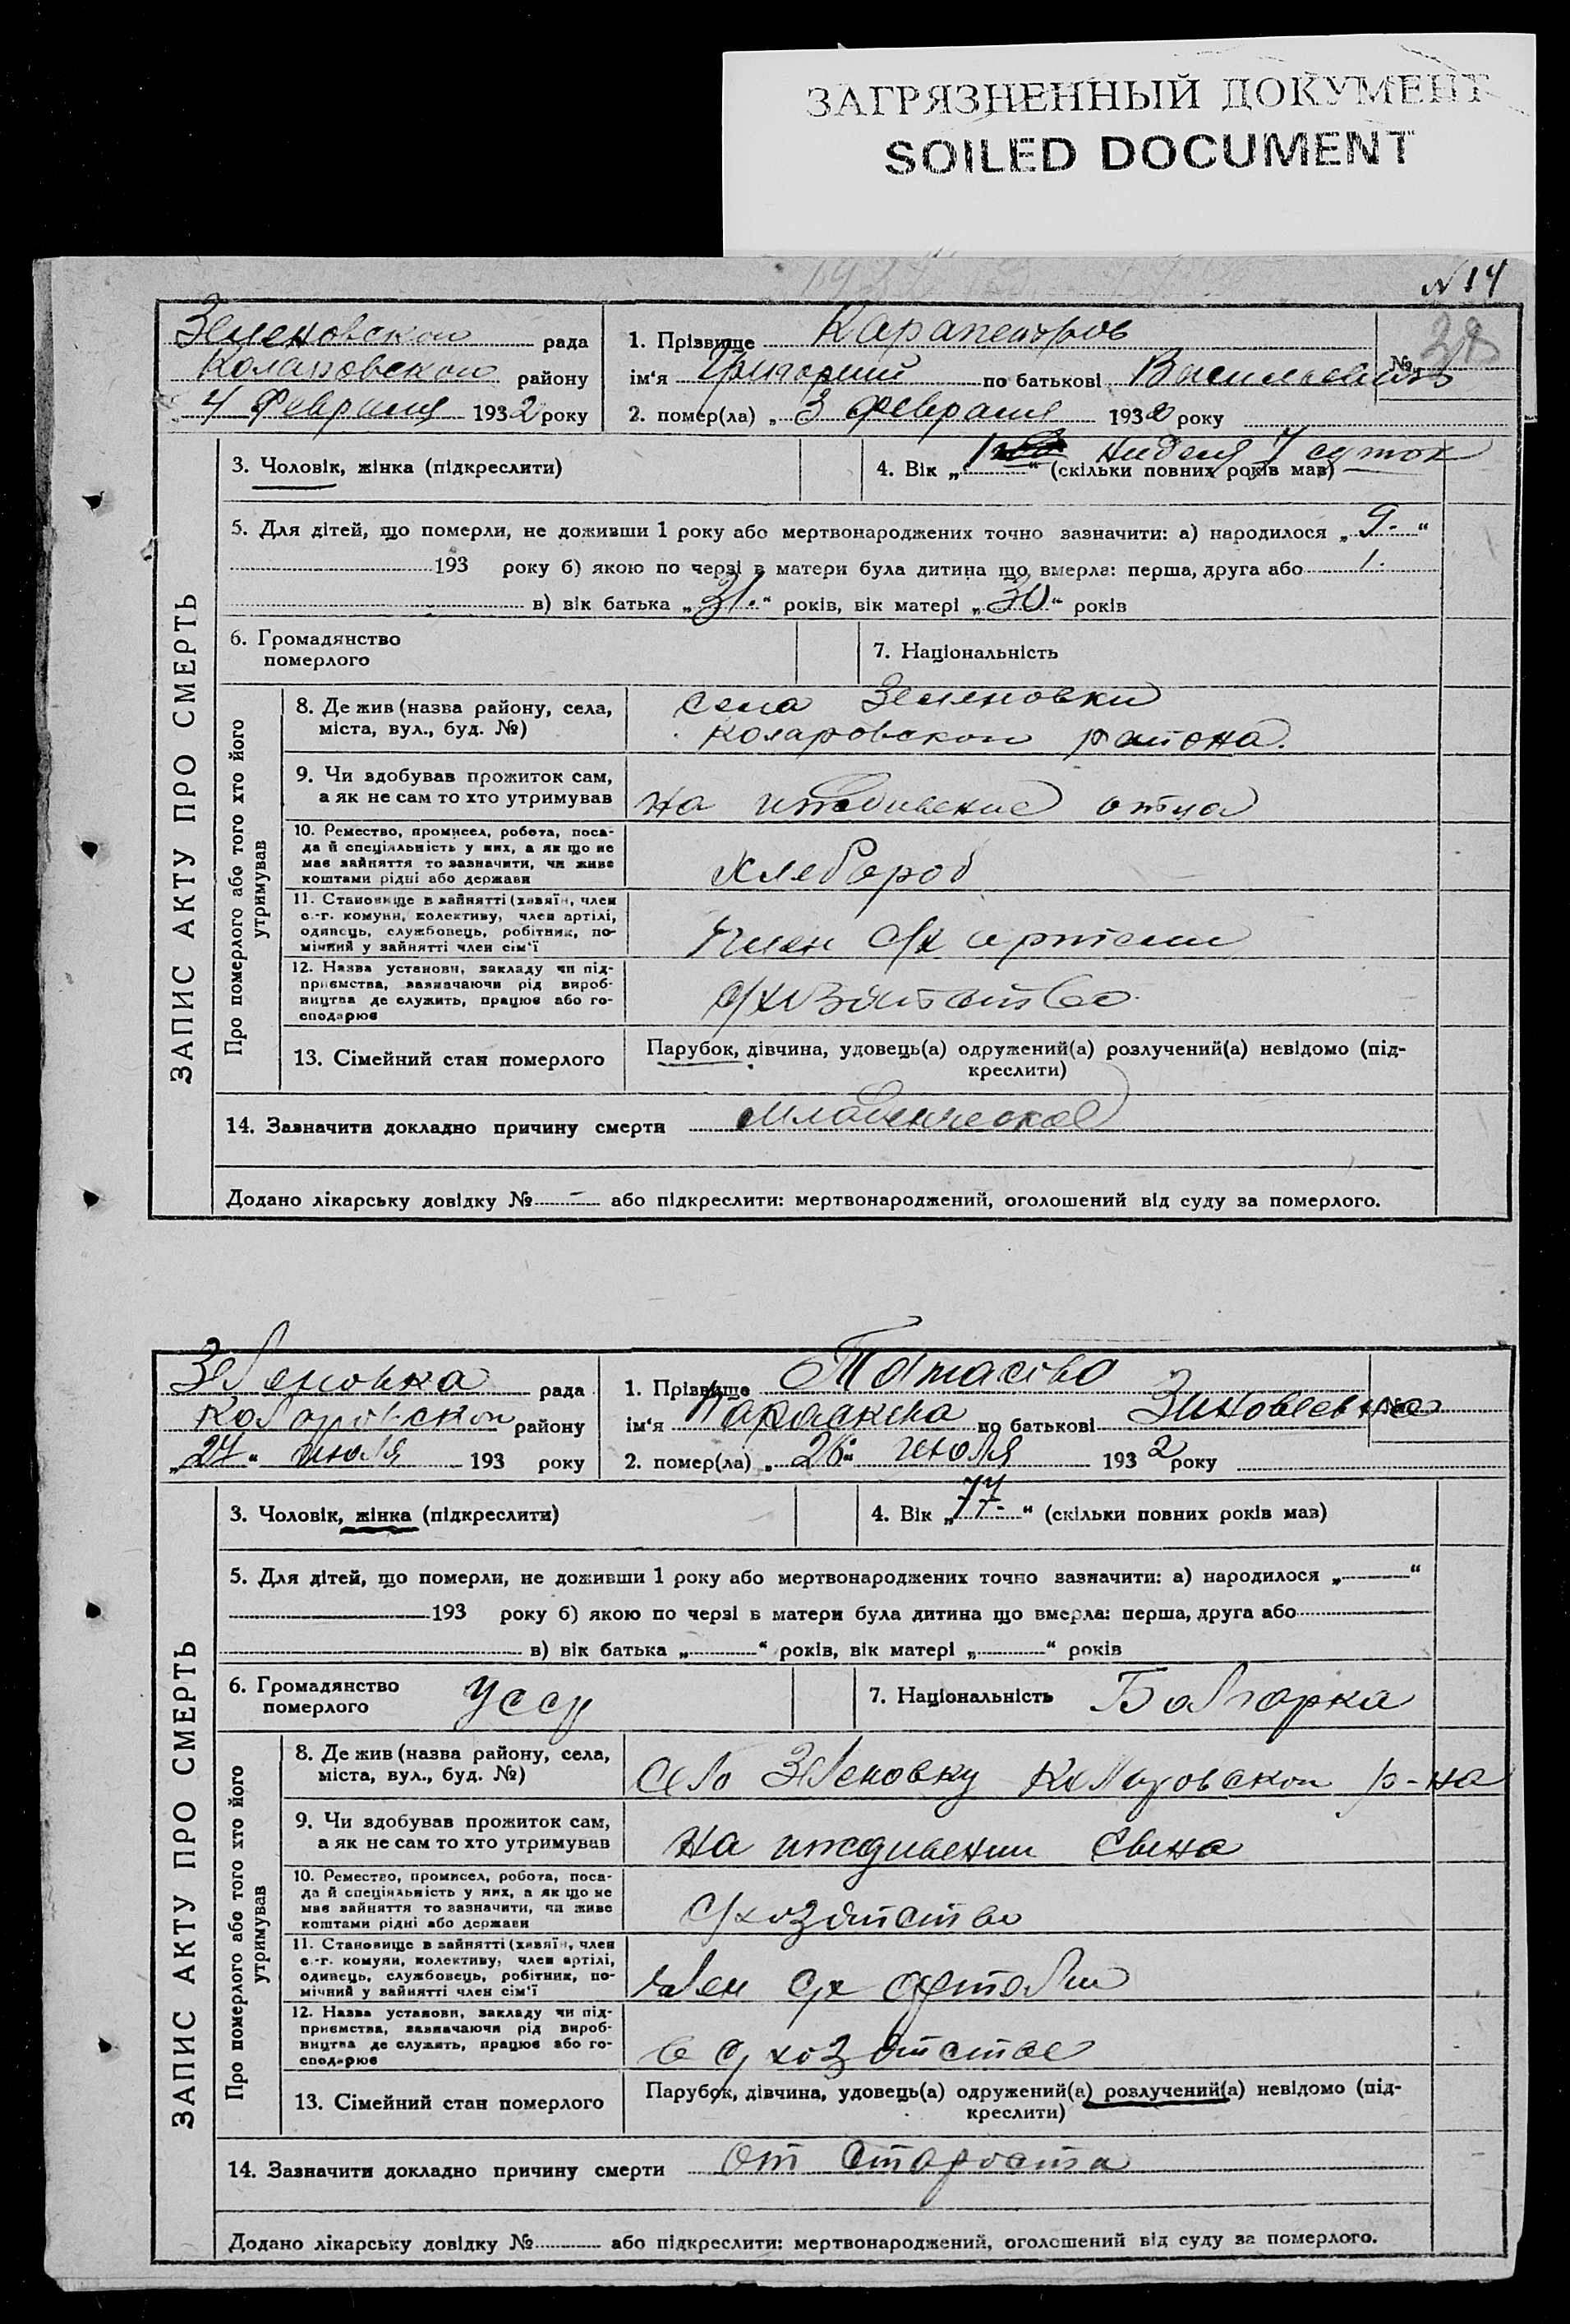 ЗАГРЯЗНЕННЫЙ ДОКУМЕНТ
SOILED DOCUMENT
N 14
38
ЗАПИС АКТУ ПРО СМЕРТЬ
Зеленовской рада
Коларовского району
4 Февраля 1932 року
1. Прізвище
№
ім'я Григорий по батькові Васильевич
2. помер(ла) „ 3 февраля 1932 року
3. Чоловік, жінка (підкреслити)
4. Вік „ 1 “ (скільки повних років мав) неделя 7 суток
5. Для дітей, що померли, не доживши 1 року або мертвонароджених точно зазначити: а) народилося „ “
193 року б) якою по черзі в матери була дитина що вмерла: перша, друга або 1.
в) вік батька „ 31. “ років, вік матері „ 30 “ років
6. Громадянство
померлого
7. Національність
Про померлого або того хто його
утримував
8. Де жив (назва району, села,
міста, вул., буд. №)
села Зеленовки
Коларовского района.
9. Чи здобував прожиток сам,
а як не сам то хто утримував
на иждивение отца
10. Ремество, промисел, робота, поса-
да й спеціяльність у них, а як що не
має зайняття то зазначити, чи живе
коштами рідні або держави
хлебороб
11. Становище в зайнятті (хазяїн, член
с.-г. комуни, колективу, член артілі,
одинець, службовець, робітник, по-
мічний у зайнятті член сім'ї
член с/х артели
12. Назва установи, закладу чи під-
приємства, зазначаючи рід вироб-
ництва де служить, працює або го-
сподарює
с/хозяйство
13. Сімейний стан померлого
Парубок, дівчина, удовець(а) одружений(а) розлучений(а) невідомо (під-
креслити)
14. Зазначити докладно причину смерти младенческое
Додано лікарську довідку № – або підкреслити: мертвонароджений, оголошений від суду за померлого.
ЗАПИС АКТУ ПРО СМЕРТЬ
Зеленовка рада
Коларовского району
„ 27 “ июля 193 року
1. Прізвище
№
ім'я по батькові Зиновеевна
2. помер(ла) „ 26 “ июля 1932 року
3. Чоловік, жінка (підкреслити)
4. Вік „ 77 “ (скільки повних років мав)
5. Для дітей, що померли, не доживши 1 року або мертвонароджених точно зазначити: а) народилося „ “
193 року б) якою по черзі в матери була дитина що вмерла: перша, друга або
в) вік батька „ “ років, вік матері „ “ років
6. Громадянство
померлого
УССР
7. Національність Болгарка
Про померлого або того хто його
утримував
8. Де жив (назва району, села,
міста, вул., буд. №)
Село Зеленовку Коларовского р-на
9. Чи здобував прожиток сам,
а як не сам то хто утримував
на иждивении сына
10. Ремество, промисел, робота, поса-
да й спеціяльність у них, а як що не
має зайняття то зазначити, чи живе
коштами рідні або держави
с/хозяйство
11. Становище в зайнятті (хазяїн, член
с.-г. комуни, колективу, член артілі,
одинець, службовець, робітник, по-
мічний у зайнятті член сім'ї
член с/х артели
12. Назва установи, закладу чи під-
приємства, зазначаючи рід вироб-
ництва де служить, працює або го-
сподарює
в с/хозяйстве
13. Сімейний стан померлого
Парубок, дівчина, удовець(а) одружений(а) розлучений(а) невідомо (під-
креслити)
14. Зазначити докладно причину смерти от староста
Додано лікарську довідку № або підкреслити: мертвонароджений, оголошений від суду за померлого.